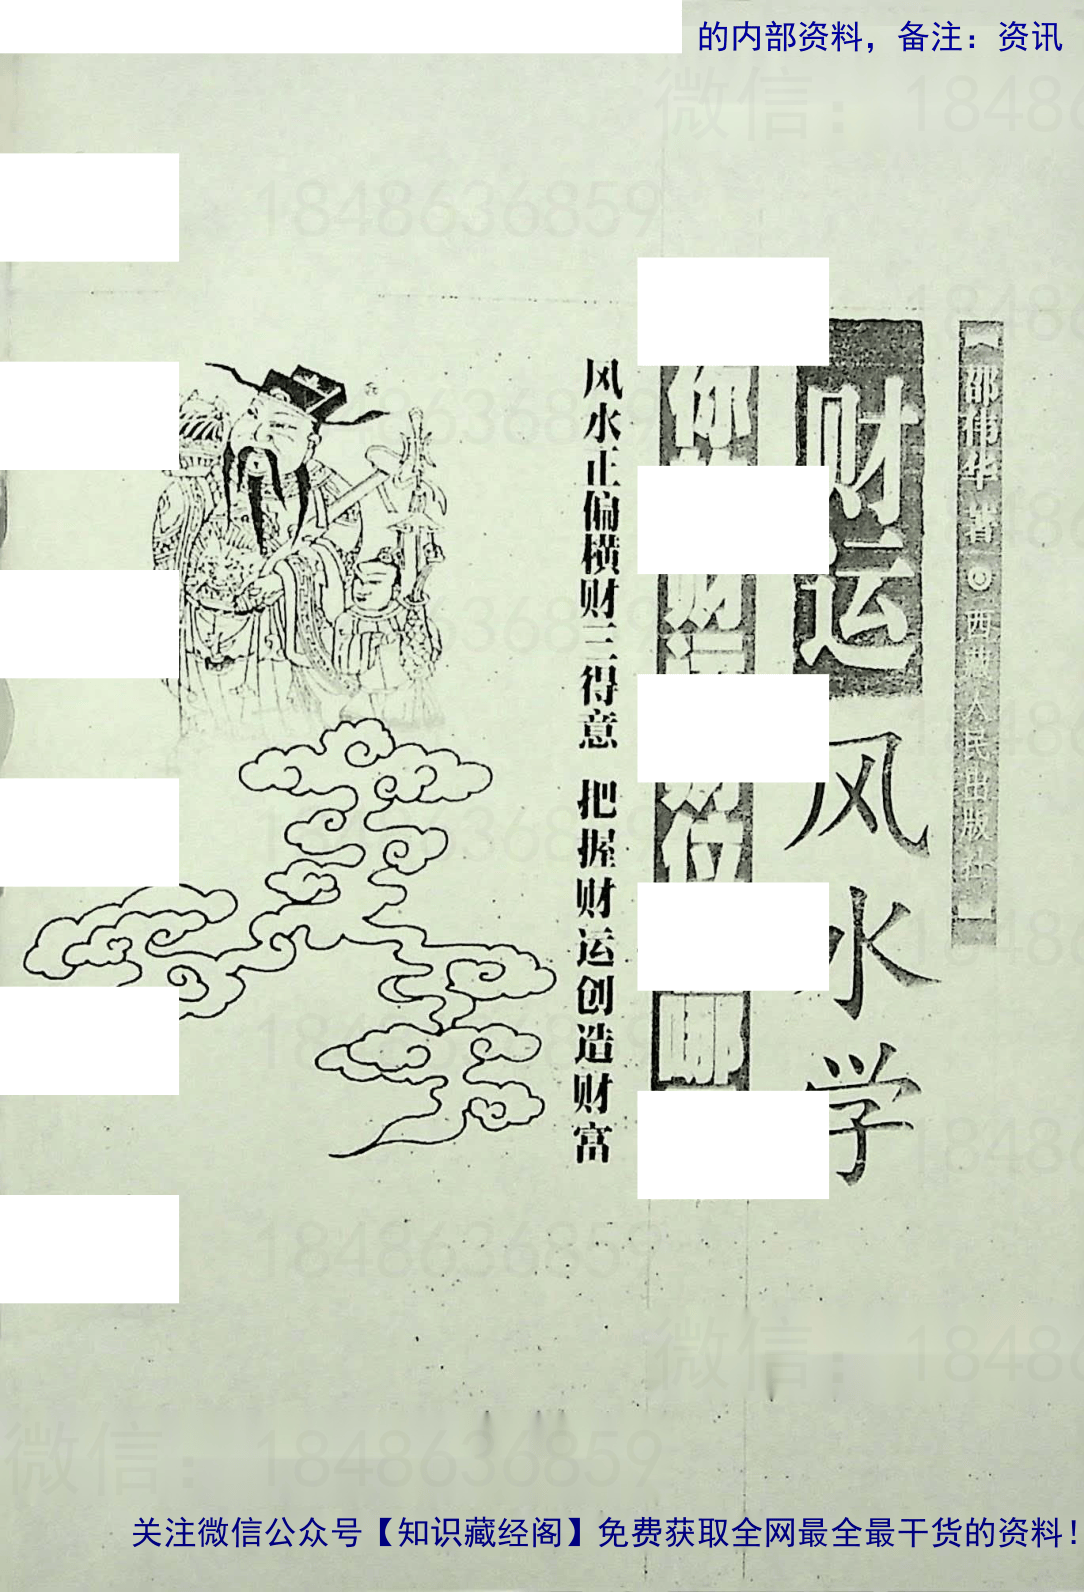 的内部资料，备注：资讯
邵伟华 著 西藏人民出版社
财运风水学
你 财运 财位 哪
风水正偏横财三得意 把握财运创造财富
微信：18486
1848636859
微信：18486
微信：1848636859
关注微信公众号【知识藏经阁】免费获取全网最全最干货的资料！